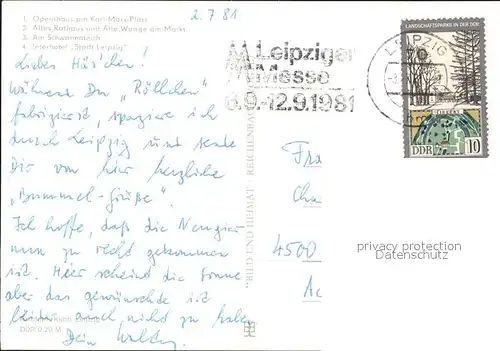 1. Opernhaus am Karl-Marx-Platz
2. Altes Rathaus und Alte Waage am Markt
3. Am Schwanenteich
4. Interhotel "Stadt Leipzig"
2.7.81
Liebes Häschen!
Während Du "Röllchen"
fabrizierst, spaziere ich
durch Leipzig und sende
Dir von hier herzliche
"Bummel-Grüße".
Ich hoffe, daß die Neugier
nun zu recht gekommen
ist. Hier scheint die Sonne
aber das gewünschte ist
leider auch nicht zu haben
Dein
DDR 0,20 M
"BILD UND HEIMAT" REICHENBACH
Leipziger
Messe
6.9.-12.9.1981
LEIPZIG
LANDSCHAFTSPARKS IN DER DDR
DDR 10
Fra
Cha
4500
privacy protection
Datenschutz